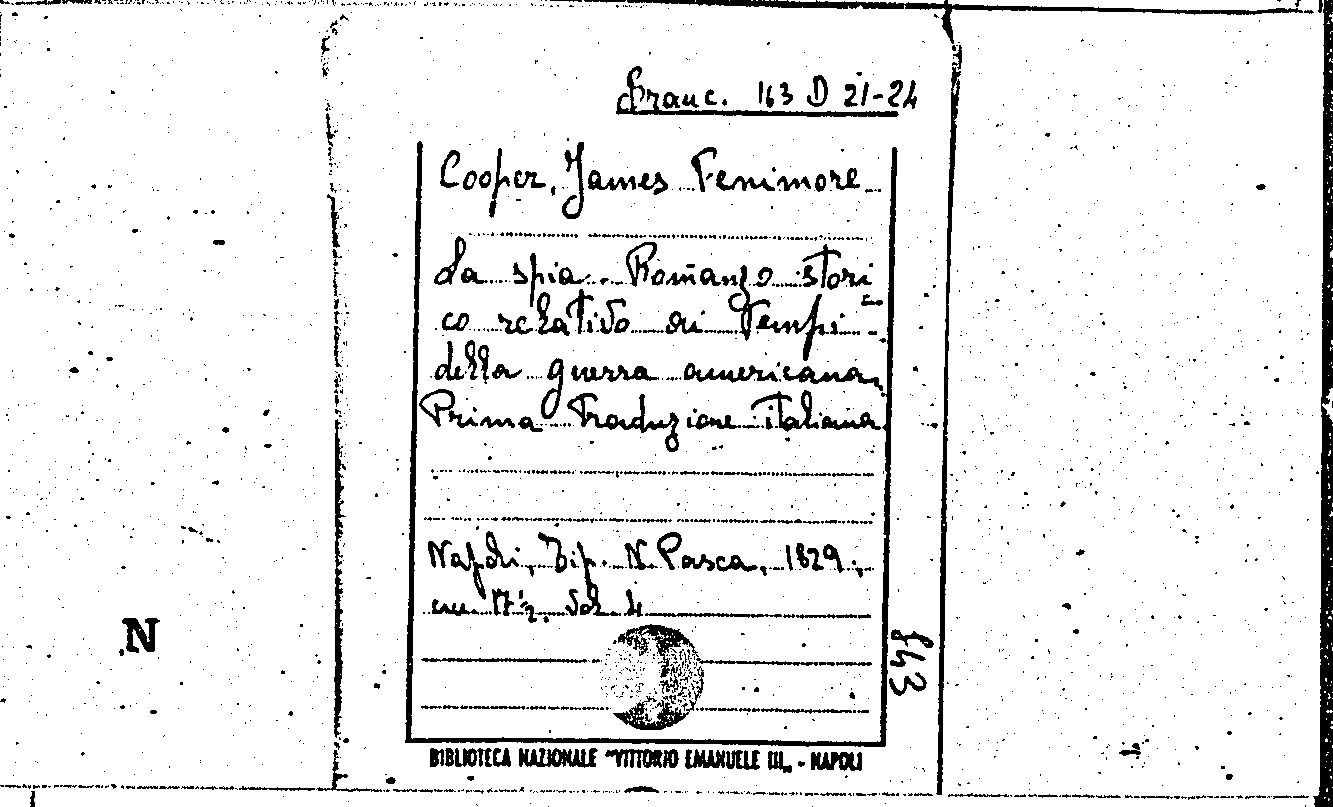 Branc. 163 D 21-24
Cooper, James Fenimore
La spia. Romanzo stori
co relativo ai tempi
della guerra americana.
Prima traduzione italiana
Napoli, Tip. N. Pasca, 1829.
cm. 17½. Vol. 4
843
N
BIBLIOTECA NAZIONALE "VITTORIO EMANUELE III„ - NAPOLI